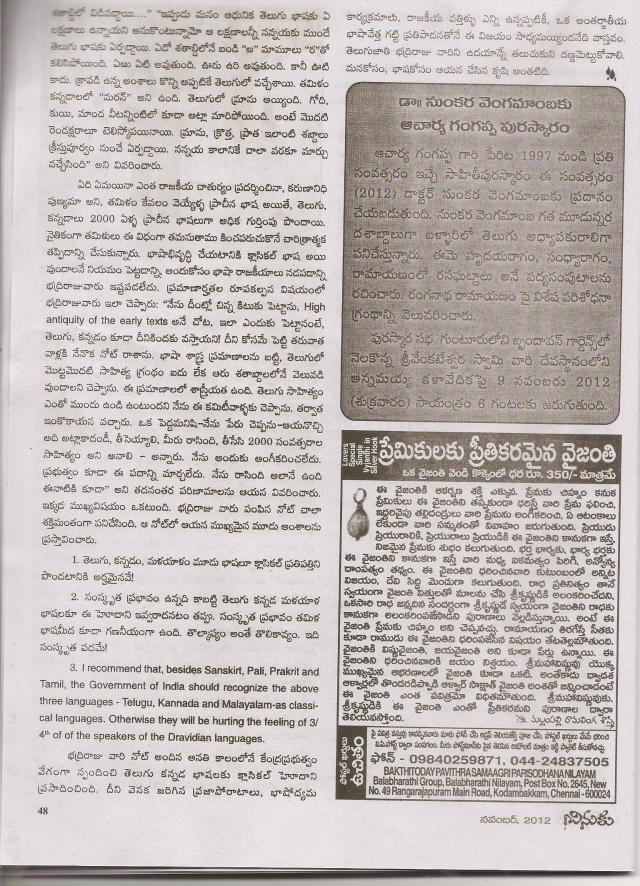 శతాబ్దిలో విడివడ్డాయి....” “ఇప్పుడు మనం ఆధునిక తెలుగు భాషకు ఏ
లక్షణాలు ఉన్నాయని అనుకుంటున్నామో ఆ లక్షణాలన్నీ నన్నయకు ముందే
తెలుగు భాషకు ఏర్పడ్డాయి. ఏడో శతాబ్దిలోనే బండి “ఱ” మామూలు “ర”తో
కలిసిపోయింది. ఏఱు ఏటి అవుతుంది. ఊరు ఉరి అవుతుంది. కానీ ఊటి
కాదు. క్రావడి ఉన్న అంశాలు కొన్ని అప్పటికే తెలుగులో వచ్చేశాయి. తమిళం
కన్నడాలలో “మరన్” అని ఉంది. తెలుగులో మ్రాను అయ్యింది. గోది,
కుయి, మాంద వీటన్నింటిలో కూడా అట్లా మారిపోయింది. అంటే మొదటి
రెండక్షరాలూ తెలిసిపోయినాయి. మ్రాను, క్రొత్త, ప్రాత ఇలాంటి శబ్దాలు
క్రీస్తుపూర్వం నుంచే ఏర్పడ్డాయి. నన్నయ కాలానికే చాలా వరకూ మార్పు
వచ్చేసింది” అని వివరించారు.
ఏది ఏమయినా ఎంత రాజకీయ చాతుర్యం ప్రదర్శించినా, కరుణానిధి
పుణ్యమా అని, తమిళం కేవలం వెయ్యేళ్ళ ప్రాచీన భాష అయితే, తెలుగు,
కన్నడాలు 2000 ఏళ్ళ ప్రాచీన భాషలుగా అధిక గుర్తింపు పొందాయి.
నైతికంగా తమిళులు ఈ విధంగా తమసుతాము కించపరుచుకొనే చారిత్రాత్మక
తప్పిదాన్ని చేసుకున్నారు. భాషాభివృద్ధి చేయటానికి క్లాసికల్ భాష అయి
వుండాలనే నియమం పెట్టడాన్ని, అందుకోసం భాషా రాజకీయాలు నడపడాన్ని
భద్రిరాజువారు ఇష్టపడలేదు. ప్రమాణాత్మతల రూపకల్పన విషయంలో
భద్రిరాజువారు ఇలా చెప్పారు: “నేను దీంట్లో చిన్న కిటుకు పెట్టాను, High
antiquity of the early texts అనే చోట, ఇలా ఎందుకు పెట్టానంటే,
తెలుగు, కన్నడం కూడా దీనికిందకు వస్తాయని! దీని కోసమే పెట్టి తరువాత
వాళ్లకి నేనొక నోట్ రాశాను. భాషా శాస్త్ర ప్రమాణాలను బట్టి, తెలుగులో
మొట్టమొదటి సాహిత్య గ్రంథం ఐదు లేక ఆరు శతాబ్దాలలోనే వెలువడి
వుండాలని చెప్పాను. ఈ ప్రమాణాలలో శాస్త్రీయత ఉంది. తెలుగు సాహిత్యం
ఎంతో ముందు ఉండి ఉంటుందని నేను ఈ కమిటీవాళ్ళకు చెప్పాను. తర్వాత
ఇంకొకాయన వచ్చారు. ఒక పెద్దమనిషి-నేను పేరు చెప్పను-ఆయనొచ్చి
అది అట్లాకాదండీ, తీసెయ్యాలి, మీరు రాసింది, తీసేసి 2000 సంవత్సరాల
సాహిత్యం అని అనాలి - అన్నారు. నేను అందుకు అంగీకరించలేదు.
ప్రభుత్వం కూడా ఈ పదాన్ని మార్చలేదు. నేను రాసింది అలానే ఉంది
ఈనాటికీ కూడా” అని తదనంతర పరిణామాలను ఆయన వివరించారు.
ఇక్కడ ముఖ్యవిషయం ఒకటుంది. భద్రిరాజు వారు పంపిన నోట్ చాలా
శక్తిమంతంగా పనిచేసింది. ఆ నోట్‌లో ఆయన ముఖ్యమైన మూడు అంశాలను
ప్రస్తావించారు.
1. తెలుగు, కన్నడం, మళయాళం మూడు భాషలూ క్లాసికల్ ప్రతిపత్తిని
పొందటానికి అర్హమైనవే!
2. సంస్కృత ప్రభావం ఉన్నది కాబట్టి తెలుగు కన్నడ మళయాళ
భాషలకూ ఈ హోదాని ఇవ్వరాదనటం తప్పు. సంస్కృత ప్రభావం తమిళ
భాషమీద కూడా గణనీయంగా ఉంది. తొల్కాప్యం అంతే తొలికావ్యం. ఇది
సంస్కృత పదమే!
3. I recommend that, besides Sanskirt, Pali, Prakrit and
Tamil, the Government of India should recognize the above
three languages - Telugu, Kannada and Malayalam-as classi-
cal languages. Otherwise they will be hurting the feeling of 3/
4th of of the speakers of the Dravidian languages.
భద్రిరాజు వారి నోట్ అందిన అనతి కాలంలోనే కేంద్రప్రభుత్వం
వేగంగా స్పందించి తెలుగు కన్నడ భాషలకు క్లాసికల్ హోదాని
ప్రసాదించింది. దీని వెనక జరిగిన ప్రజాపోరాటాలు, భాషోద్యమ
48
కార్యక్రమాలు, రాజకీయ వత్తిళ్ళు ఎన్ని ఉన్నప్పటికీ, ఒక అంతర్జాతీయ
భాషావేత్త గట్టి ప్రతిపాదనతోనే ఈ విజయం సాధ్యమయ్యిందనేది వాస్తవం.
తెలుగుజాతి భద్రిరాజు వారిని ఉదయాన్నే తలుచుకుని దణ్ణమెట్టుకోవాలి.
మనకోసం, భాషకోసం ఆయన చేసిన కృషి అంతటిది.
డా॥ సుంకర వెంగమాంబకు
ఆచార్య గంగప్ప పురస్కారం
ఆచార్య గంగప్ప గారి పేరిట 1997 నుండి ప్రతి
సంవత్సరం ఇచ్చే సాహితీపురస్కారం ఈ సంవత్సరం
(2012) డాక్టర్ సుంకర వెంగమాంబకు ప్రదానం
చేయబడుతుంది. సుంకర వెంగమాంబ గత మూడున్నర
దశాబ్దాలుగా బళ్ళారిలో తెలుగు అధ్యాపకురాలిగా
పనిచేస్తున్నారు. ఈమె హృదయరాగం, సంధ్యారాగం,
రామాయణంలో రసఘట్టాలు అనే పద్యసంపుటాలను
రచించారు. రంగనాథ రామాయణం పై విశేష పరిశోధనా
గ్రంథాన్ని వెలువరించారు.
పురస్కార సభ గుంటూరులోని బృందావన్ గార్డెన్స్‌లో
నెలకొన్న శ్రీవేంకటేశ్వర స్వామి వారి దేవస్థానంలోని
అన్నమయ్య కళావేదికపై 9 నవంబరు 2012
(శుక్రవారం) సాయంత్రం 6 గంటలకు జరుగుతుంది.
Lovers Special Single Vyjanthi in Silver Hook
ప్రేమికులకు ప్రీతికరమైన వైజంతి
ఒక వైజంతి వెండి కొక్కెంలో ధర రూ. 350/- మాత్రమే
ఈ వైజంతికి ఆకర్షణ శక్తి ఎక్కువ. ప్రేమకు చిహ్నం కనుక
ప్రేమికులు ఈ వైజంతిని తప్పకుండా ధరిస్తే వారి ప్రేమ ఫలించి,
ఇద్దరివైపు తల్లిదండ్రులు వారి ప్రేమను అంగీకరించి, ఏ ఆటంకాలు
లేకుండా వారి సమ్మతంతో వివాహం జరుగుతుంది. ప్రియుడు
ప్రియురాలికి, ప్రియురాలు ప్రియుడికి ఈ వైజంతిని కానుకగా ఇస్తే,
నిజమైన ప్రేమకు శుభం కలుగుతుంది. భర్త భార్యకు, భార్య భర్తకు
ఈ వైజంతిని కానుకగా ఇస్తే వారి మధ్య ఐకమత్యం పెరిగి, అన్యోన్య
దాంపత్యం తథ్యం. ఈ వైజంతిని ధరించినవారి కుటుంబంలో అన్నిట
విజయం, దేవి సిద్ధి మెండుగా కలుగుతుంది. రాధ ప్రతినిత్యం తానే
స్వయంగా వైజంతి విత్తులతో మాలను చేసి శ్రీకృష్ణుడికి అలంకరించేదని,
ఒకసారి రాధ జన్మదిన సందర్భంగా శ్రీకృష్ణుడే స్వయంగా వైజంతిని రాధకు
కానుకగా అలంకరింపజేసేడని పురాణాలు వెల్లడిస్తున్నాయి. అంటే ఈ
వైజంతి ప్రేమకు చిహ్నం అని చెప్పవచ్చు. రామాయణం తిరగేస్తే సీతకు
కూడా రాముడు ఈ వైజంతిని ధరింపజేసిన విషయం తేటతెల్లమౌతుంది.
వైజంతికి విష్ణువైజంతి, జయవైజంతి అని కూడా పేర్లు ఉన్నాయి. ఈ
వైజంతిని ధరించినవారికి జయం నిశ్చయం. శ్రీమహావిష్ణువు యొక్క
ముఖ్యమైన ఆభరణాలలో వైజంతి కూడా ఒకటి. అంతేకాదు ద్వాదశ
ఆళ్వార్లలో తొండరడిప్పొడి ఆళ్వార్ సాక్షాత్ వైజంతి అంశతో జన్మించాడంటే
ఈ వైజంతి ఎంత పవిత్రమో విధితమౌతుంది. శ్రీమహావిష్ణువుకు,
శ్రీకృష్ణుడికి ఈ వైజంతి ఎంతో ప్రీతికరమని పురాణాల ద్వారా
తెలియవస్తోంది.
ఫోన్ - 09840259871, 044-24837505
BAKTHITODAY PAVITHRA SAMAAGRI PARISODHANA NILAYAM
Balabharathi Group, Balabharathi Nilayam, Post Box No. 2645, New
No. 49 Rangarajapuram Main Road, Kodambakkam, Chennai - 600024
నవంబర్, 2012
చినుకు